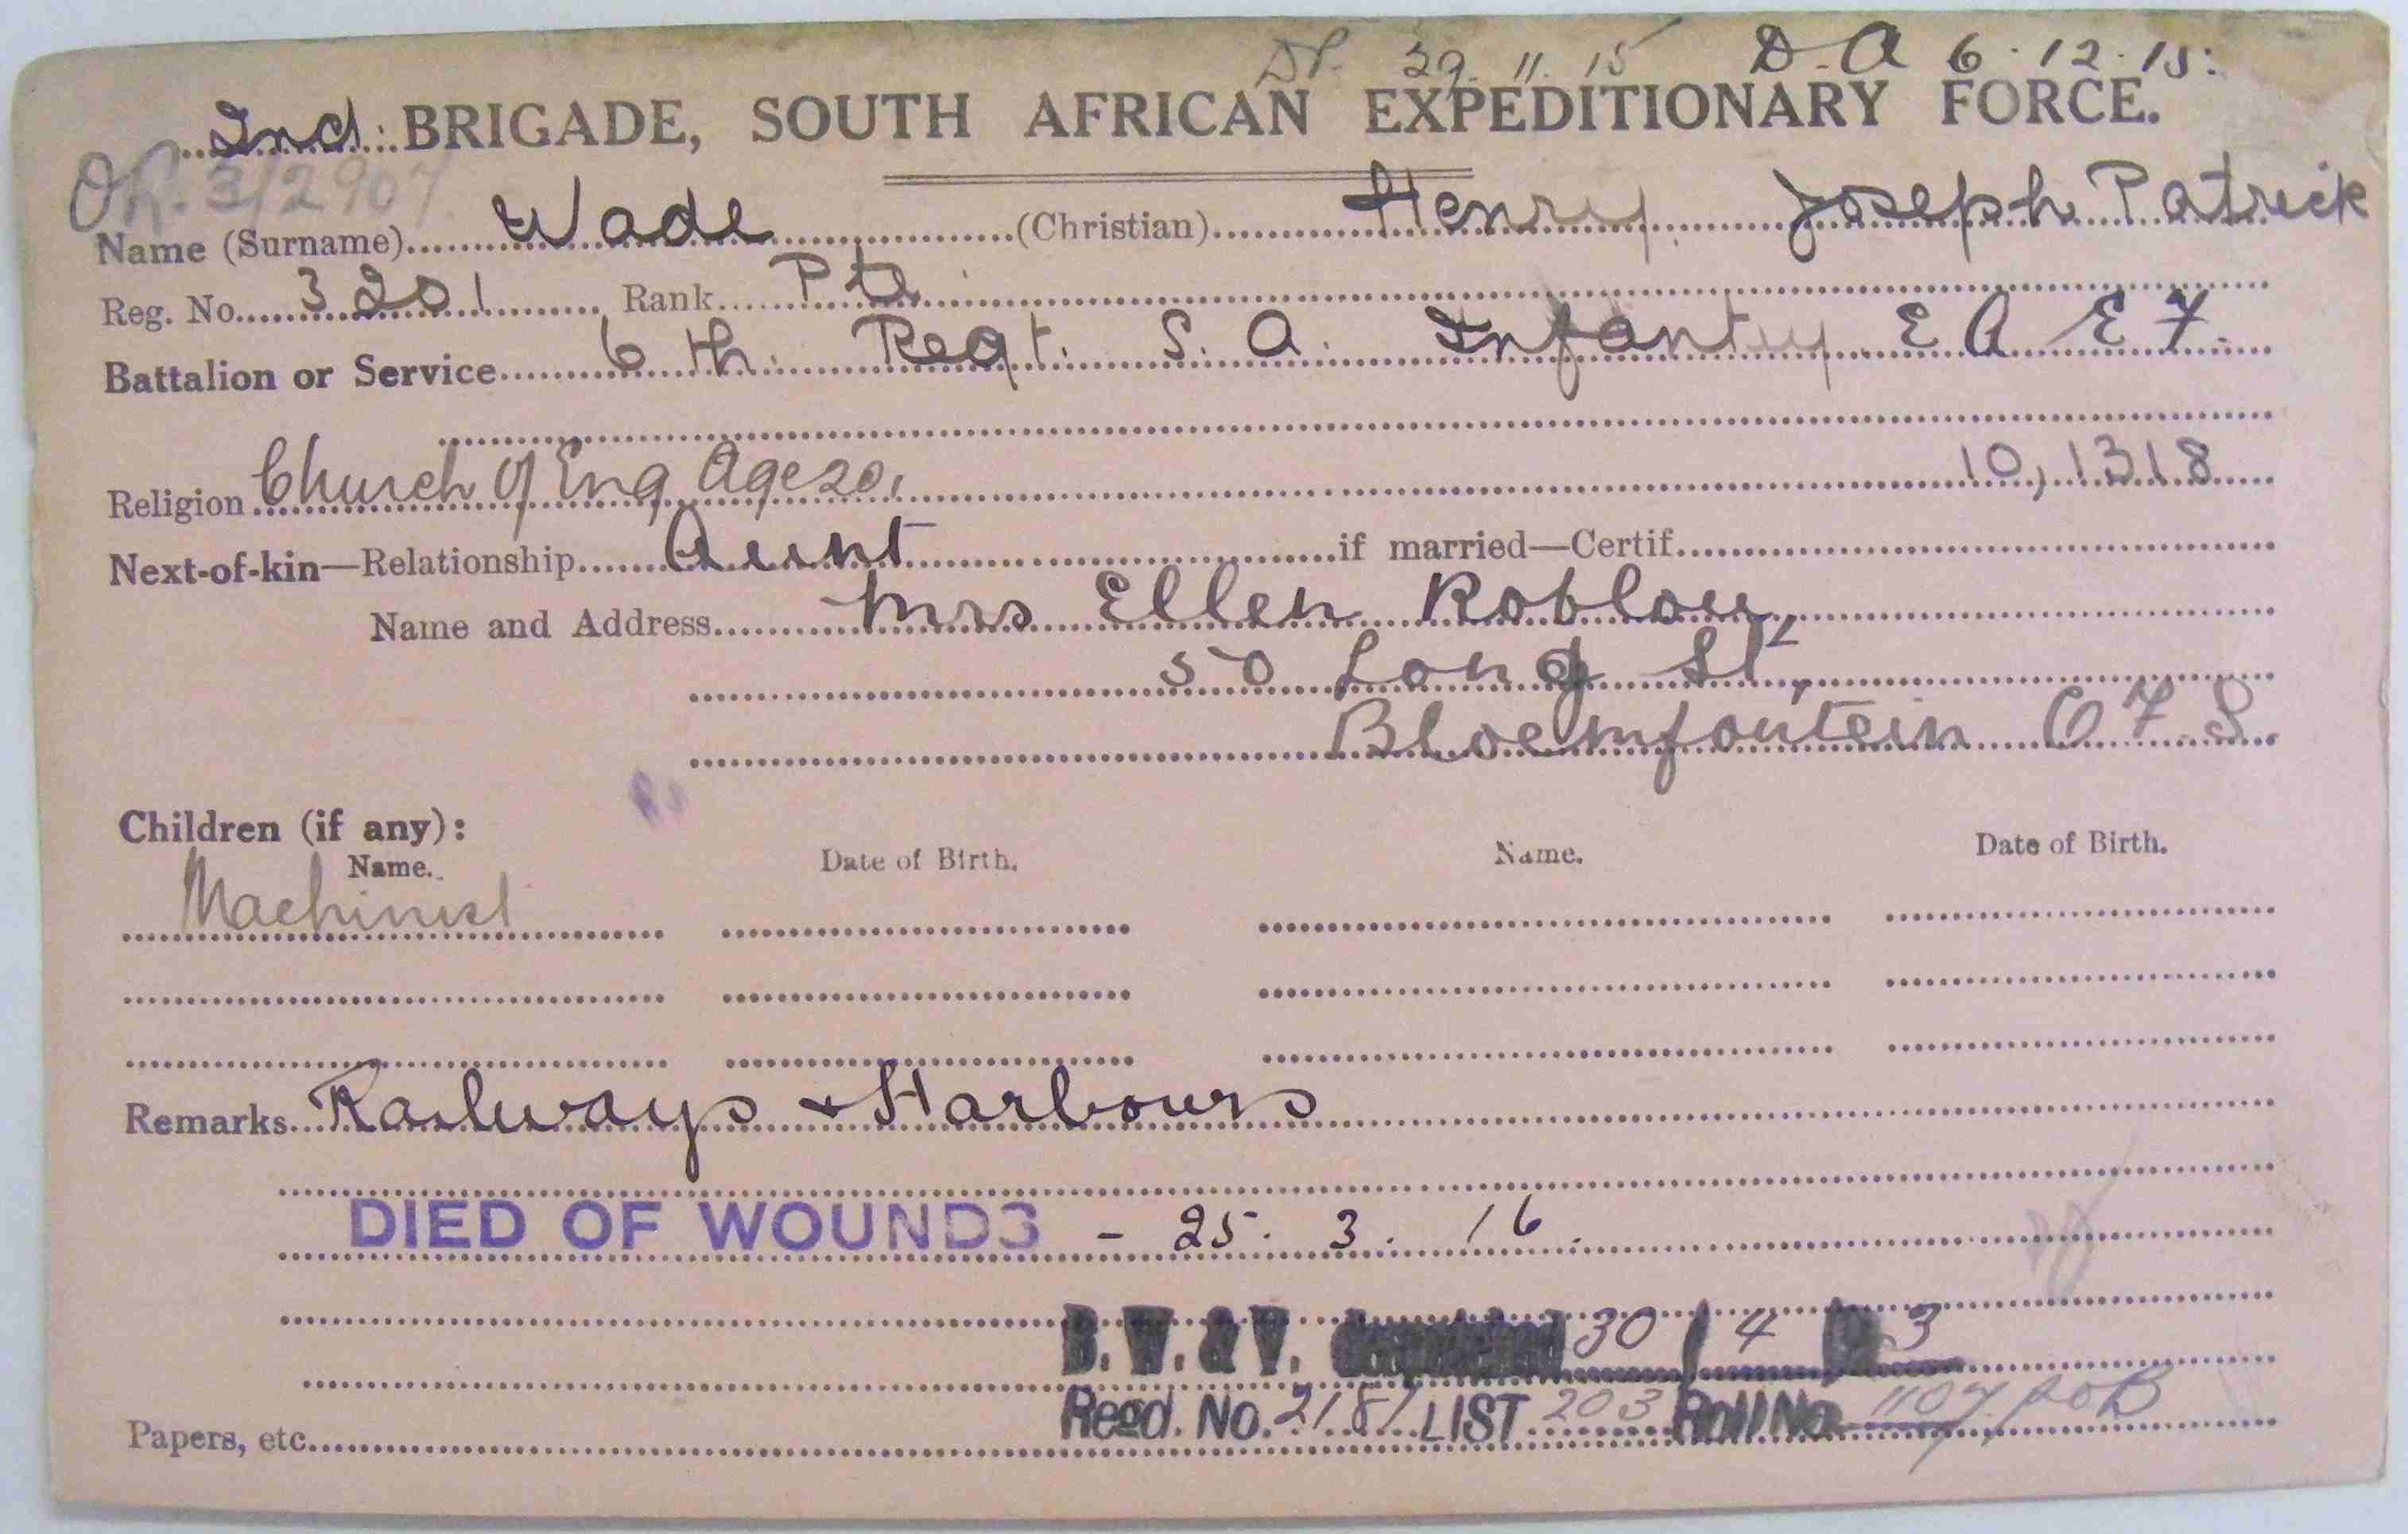 DP. 29. 11. 15 D. A 6. 12. 15:
2nd. BRIGADE, SOUTH AFRICAN EXPEDITIONARY FORCE.
OR. 3/2907.
Name (Surname) Wade (Christian) Henry Joseph Patrick
Reg. No. 3201 Rank Pte.
Battalion or Service 6th. Regt. S. A. Infantry E A E F.
Religion Church of Eng Age 20, 10,1318
Next-of-kin—Relationship Aunt if married—Certif.
Name and Address Mrs Ellen
50 Long St,
Bloemfontein O F S.
Children (if any):
Name. Date of Birth. Name. Date of Birth.
Machinist
Remarks. Railways + Harbours
DIED OF WOUNDS - 25. 3. 16.
B. W. & V. despatched 30 / 4 / 3
Regd. No. 2187 LIST 203 Roll No. 1107
Papers, etc.